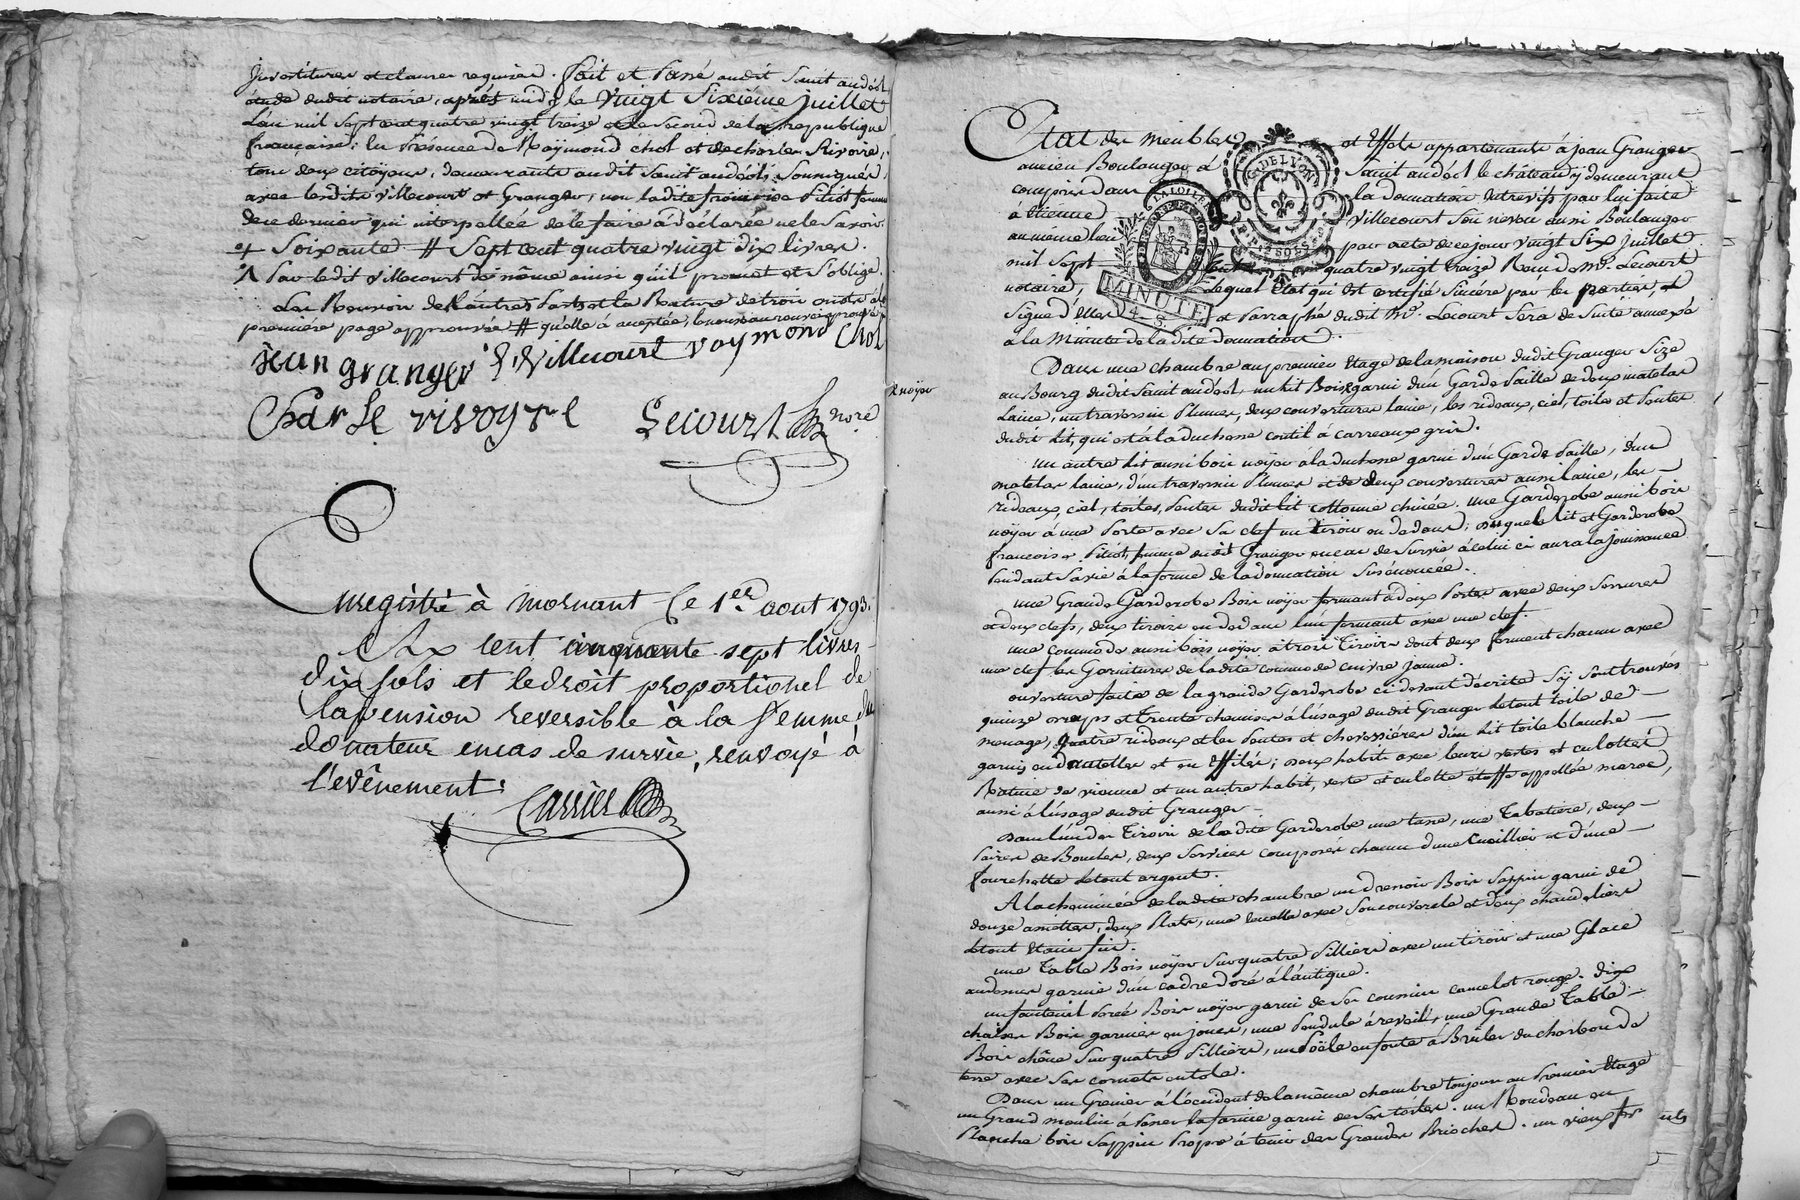 fait et passé audit Saint andéol
étude dudit notaire, après midy le vingt Sixième juillet
L'an mil Sept cent quatre vingt treize et le Second de la republique
française; En Présence de Raÿmond chol et de charles Rivoire,
tous deux citoÿens, demeurants audit Saint andéol, Soussignés,
avec lesdits villecourt et Granger, non ladite françoise Pitiot femme
de ce dernier qui interpellée de le faire á déclarée ne le Savoir.
Soixante # Sept cent quatre vingt dix livres.
Par ledit villecourt de même ainsi qu'il promet et S'oblige.
première page approuvée # qu'elle á acceptée,
jean granger villecourt raymond Chol
Charle rivoyre Lecourt nore
Enregistré à mornant le 1er aout 1793.
cent cinquante sept livres
dix sols et le droit proportionel de
la pension reversible à la femme du
donateur en cas de survie, renvoyé à
l'evênement:
Carrier
noÿer
Etat des meubles et Effets appartenants á jean Granger
ancien Boulanger á Saint andéol le château y demeurant
compris dans la donation Entrevifs par lui faite
á Etienne villecourt Son neveu aussi Boulanger
au même lieu par acte de ce jour vingt Six juillet
mil Sept cent quatre vingt treize Reçu de Me. Lecourt
notaire, lequel Etat qui Est certifié Sincére par les parties,
Signé d'Elles et Parraphé dudit Me. Lecourt Sera de Suite annexé
á la Minute de la dite donation.
GDELYON
MINUTE
4. S.
Dans une chambre au premier Etage de la maison dudit Granger Size
au Bourg dudit Saint andéol, un Lit Bois garni d'un Garde Paille de deux matelas
Laine, un traversin Plumes, deux couvertures laine, les rideaux, ciel, toiles et Pentes
dudit Lit, qui est á la duchesse coutil á carreaux gris.
un autre Lit aussi bois noÿer á la duchesse garni d'un Garde Paille, d'un
matelas laine, d'un traversin Plumes et de deux couvertures aussi laine, les
rideaux, ciel, toiles, Pentes dudit lit cottonne chinée. une Garderobe aussi bois
noÿer á une Porte avec Sa clef un tiroir en dedans; duquel lit et Garderobe
françoise Pitiot, femme dudit Granger en cas de Survie á celui ci aura la jouissance
Pendant Sa vie á la forme de la donation Susénoncée.
une Grande Garderobe Bois noÿer fermant á deux Portes avec deux Serrures
et deux clefs, deux tiroirs en dedans l'un fermant avec une clef.
une commode aussi bois noÿer á trois Tiroirs dont deux ferment chacun avec
une clef les Garnitures de ladite commode cuivre jaune.
ouverture faite de la grande Garderobe ci devant décrite S'ÿ Sont trouvés
quinze draps et trente chemises á l'usage dudit Granger le tout toile de
menage, quatre rideaux et les Pentes et d'un Lit toile blanche
garnis en dentelles et en Effilés; deux habits avec leurs vestes et culottes
Ratine de vienne et un autre habit, veste et culotte étoffe appellée maroc,
aussi á l'usage dudit Granger
Dans l'un des Tiroirs de ladite Garderobe une tasse, une Tabatiere, deux
Paires de Boucles, deux Services composés chacun d'une Cuillier et d'une
fourchette le tout argent.
A la cheminée de ladite chambre un dressoir Bois Sappin garni de
douze assiettes, deux Plats, une Ecuelle avec Son couvercle et deux chandeliers
le tout Etain fin.
une Table Bois noÿer Sur quatre Pilliers avec un tiroir et une Glace
au dessus garnie d'un cadre doré á l'antique.
un fauteuil Bois noÿer garni de Son coussin camelot rouge. dix
chaises Bois garnies en joncs, une Pendule á reveil, une Grande Table
Bois chêne Sur quatre Pilliers, un Poële en fonte á Brûler du charbon de
terre avec Ses cornets en tole.
Dans un Grenier á l'occident de la même chambre toujours au Premier Etage
un Grand moulin á Passer la farine garni de Ses toiles. un Rondeau en
Planche bois Sappin Propre á tenir des Grandes Brioches. un vieux